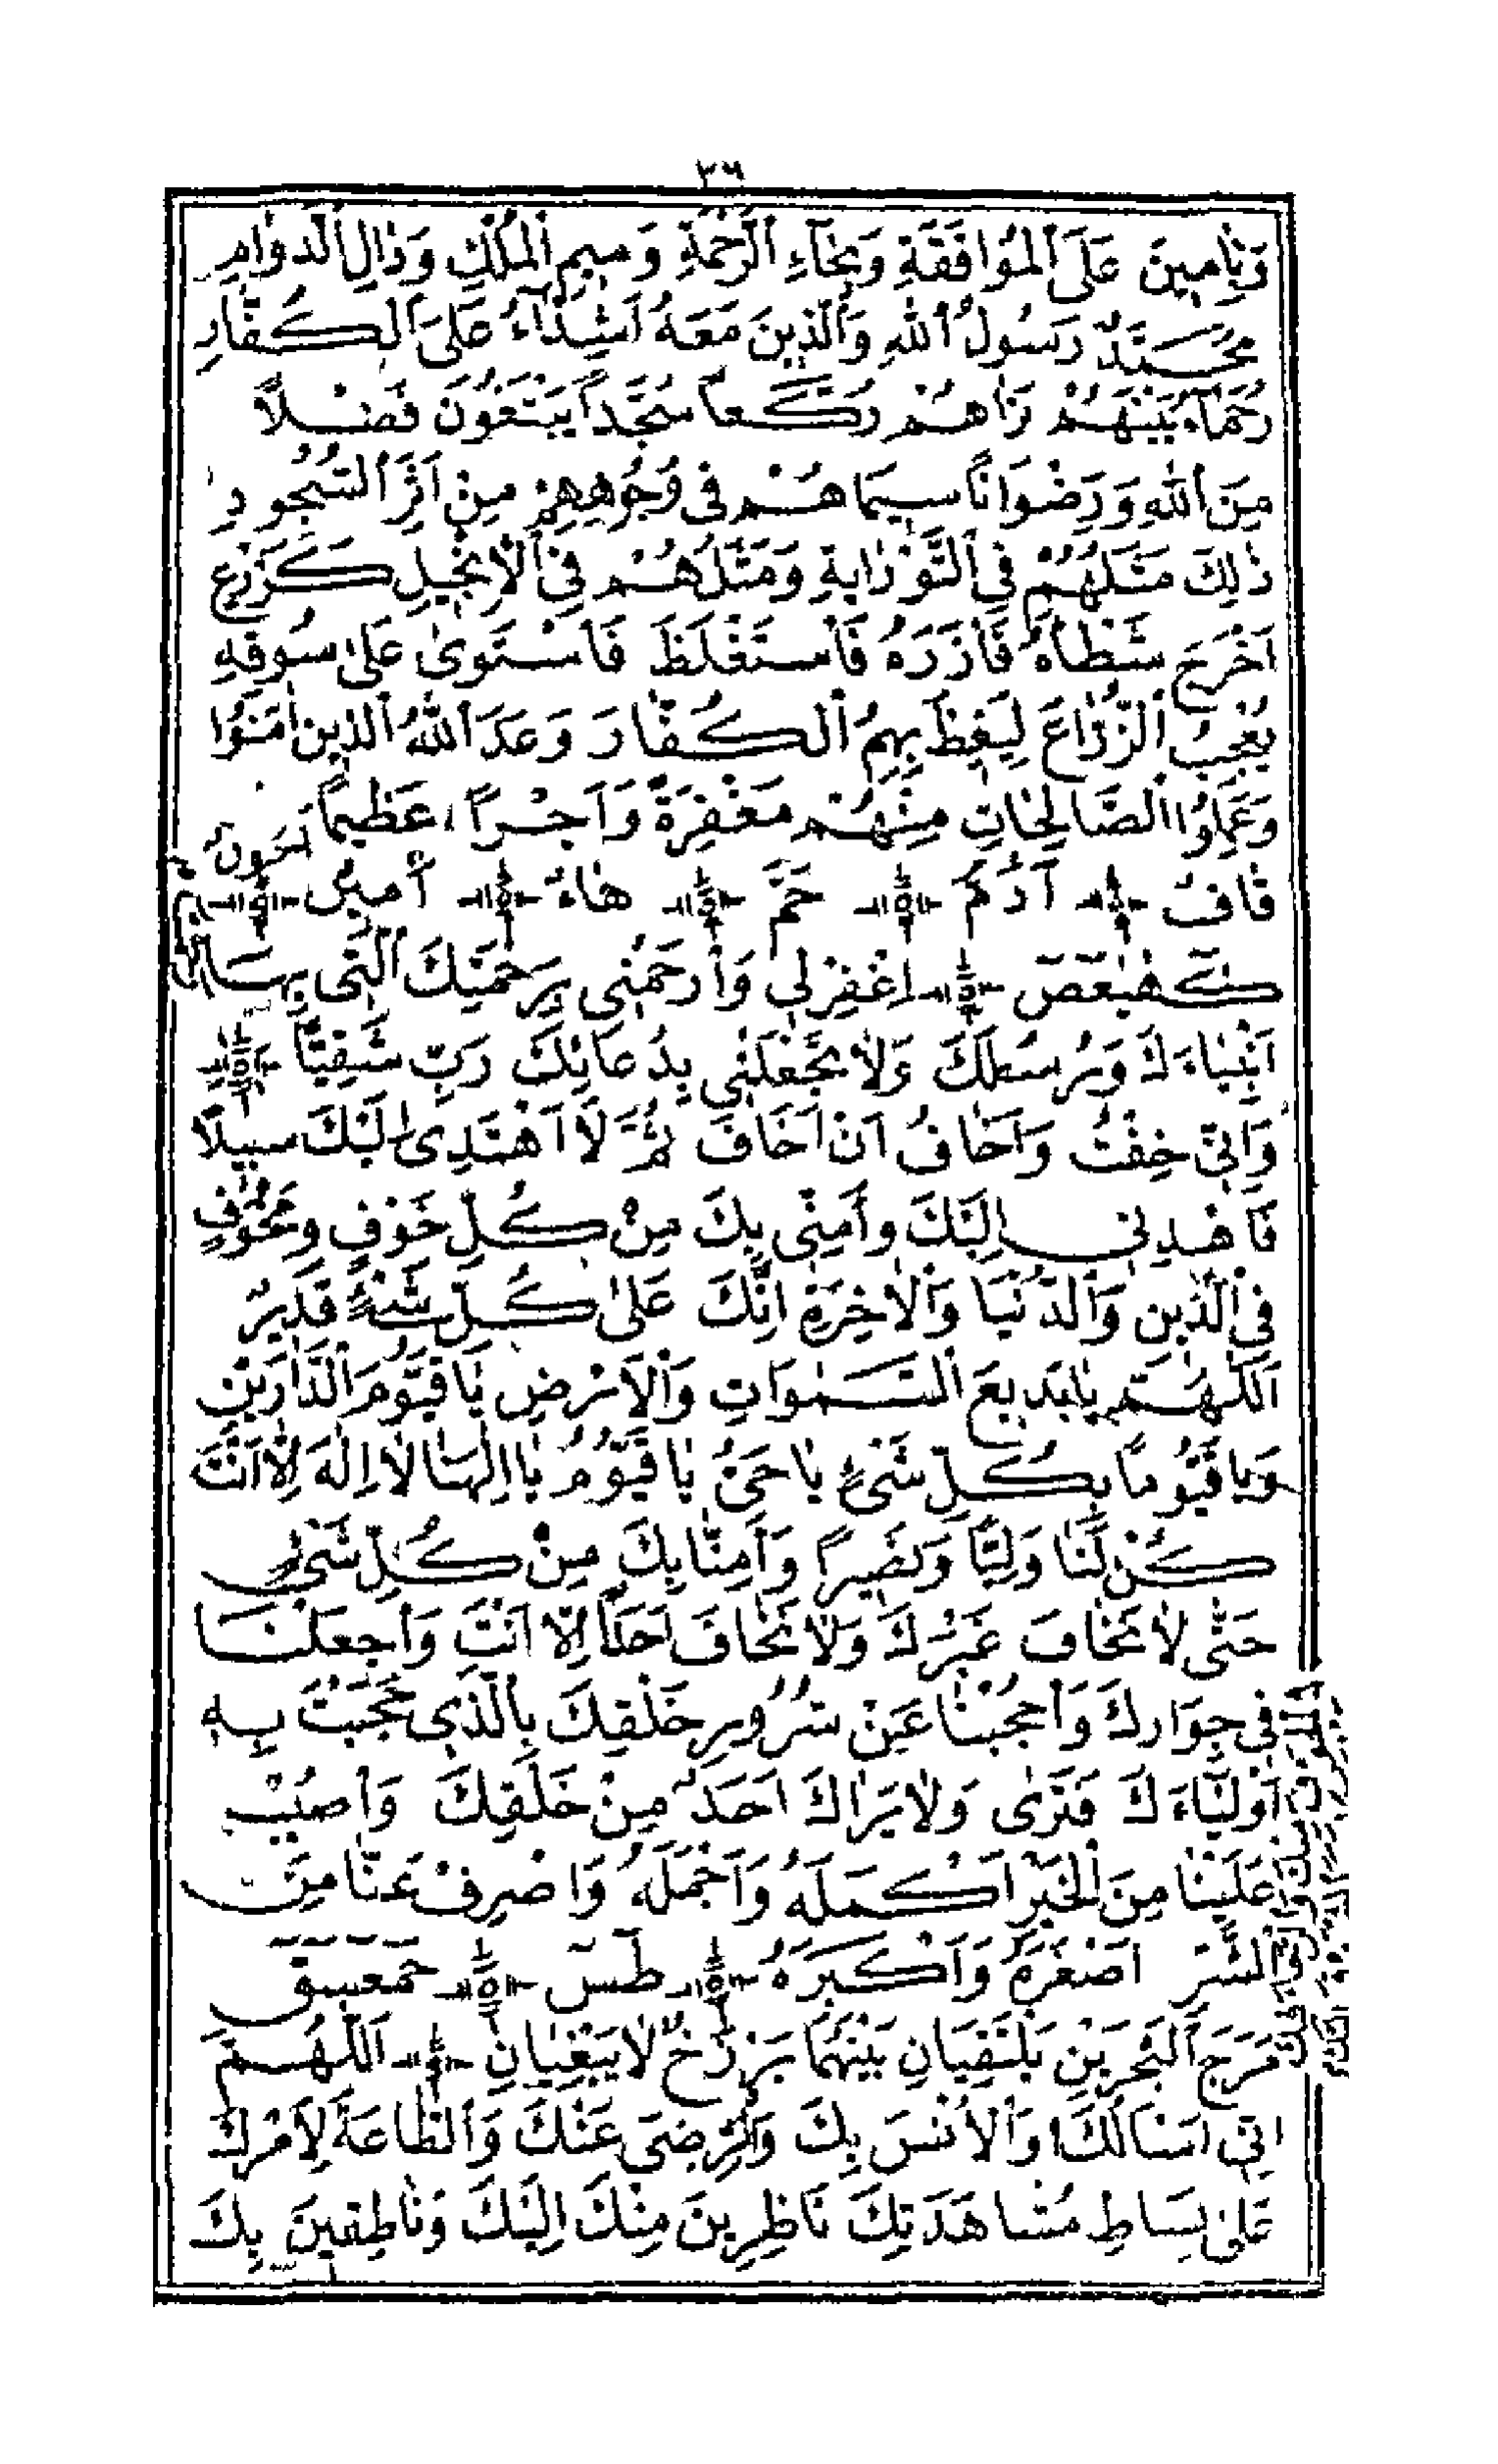 ٢٦
وَبِامِينَ عَلَى الْمُوَافَقَةِ وَبِحَآءِ الرَّحْمَةِ وَمِيمِ الْمُلْكِ وَدَالِ الدَّوَامِ
مُحَمَّدٌ رَسُولُ اللهِ وَالَّذِينَ مَعَهُ اَشِدَّآءُ عَلَى الْكُفَّارِ
رُحَمَآءُ بَيْنَهُمْ تَرَاهُمْ رُكَّعاً سُجَّداً يَبْتَغُونَ فَضْلاً
مِنَ اللهِ وَرِضْوَاناً سِيمَاهُمْ فِى وُجُوهِهِمْ مِنْ اَثَرِ السُّجُودِ
ذٰلِكَ مَثَلُهُمْ فِى التَّوْرٰيةِ وَمَثَلُهُمْ فِى الْاِنْجِيلِ كَزَرْعٍ
اَخْرَجَ شَطْأَهُ فَآزَرَهُ فَاسْتَغْلَظَ فَاسْتَوٰى عَلٰى سُوقِهِ
يُعْجِبُ الزُّرَّاعَ لِيَغِظَ بِهِمُ الْكُفَّارَ وَعَدَ اللهُ الَّذِينَ اٰمَنُوا
وَعَمِلُوا الصَّالِحَاتِ مِنْهُمْ مَغْفِرَةً وَاَجْراً عَظِيماً
قَافٌ آدُمَ حَمَّ هَاءٌ آمِينُ
كٓهٰيٰعٓصٓ اِغْفِرْلِى وَارْحَمْنِى بِرَحْمَتِكَ الَّتِى
اَنْبِيَاءَكَ وَرُسُلَكَ وَلَا تَجْعَلْنِى بِدُعَائِكَ رَبِّ شَقِيًّا
وَاِنِّى خِفْتُ وَاَخَافُ اَنْ اَخَافَ ثُمَّ لَا اَهْتَدِى اِلَيْكَ سَبِيلاً
فَاهْدِنِى اِلَيْكَ وَأَمِنِّى بِكَ مِنْ كُلِّ خَوْفٍ وَمَخُوفٍ
فِى الدِّينِ وَالدُّنْيَا وَالْاٰخِرَةِ اِنَّكَ عَلٰى كُلِّ شَىْءٍ قَدِيرٌ
اَللّٰهُمَّ يَا بَدِيعَ السَّمٰوَاتِ وَالْاَرْضِ يَا قَيُّومَ الدَّارَيْنِ
وَيَا قَيُّوماً بِكُلِّ شَىْءٍ يَا حَىُّ يَا قَيُّومُ يَا اِلٰهَنَا لَا اِلٰهَ اِلَّا اَنْتَ
كُنْ لَنَا وَلِيًّا وَنَصِيراً وَاَمِنَّا بِكَ مِنْ كُلِّ شَىْءٍ
حَتّٰى لَا نَخَافَ غَيْرَكَ وَلَا نَخَافَ اَحَداً اِلَّا اَنْتَ وَاجْعَلْنَا
فِى جِوَارِكَ وَاحْجُبْنَا عَنْ شُرُورِ خَلْقِكَ بِالَّذِى حَجَبْتَ بِهِ
اَوْلِيَاءَكَ فَتَرٰى وَلَا يَرَاكَ اَحَدٌ مِنْ خَلْقِكَ وَاصْبُبْ
عَلَيْنَا مِنَ الْخَيْرِ اَكْمَلَهُ وَاَجْمَلَهُ وَاصْرِفْ عَنَّا مِنَ
الشَّرِّ اَصْغَرَهُ وَاَكْبَرَهُ طٰسٓ حٰمٓعٓسٓقٓ
مَرَجَ الْبَحْرَيْنِ يَلْتَقِيَانِ بَيْنَهُمَا بَرْزَخٌ لَا يَبْغِيَانِ اَللّٰهُمَّ
اِنِّى اَسْأَلُكَ وَالْاُنْسَ بِكَ وَالرِّضَى عَنْكَ وَالطَّاعَةَ لِاَمْرِكَ
عَلٰى بِسَاطِ مُشَاهَدَتِكَ نَاظِرِينَ مِنْكَ اِلَيْكَ وَنَاطِقِينَ بِكَ